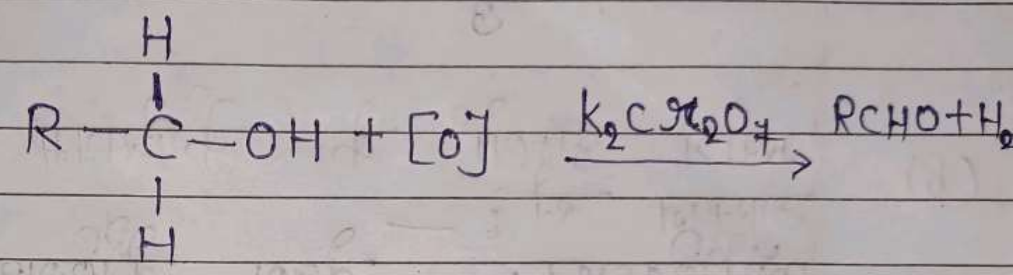 H
R - C - OH + [O] K₂Cr₂O₇ RCHO + H₂
H